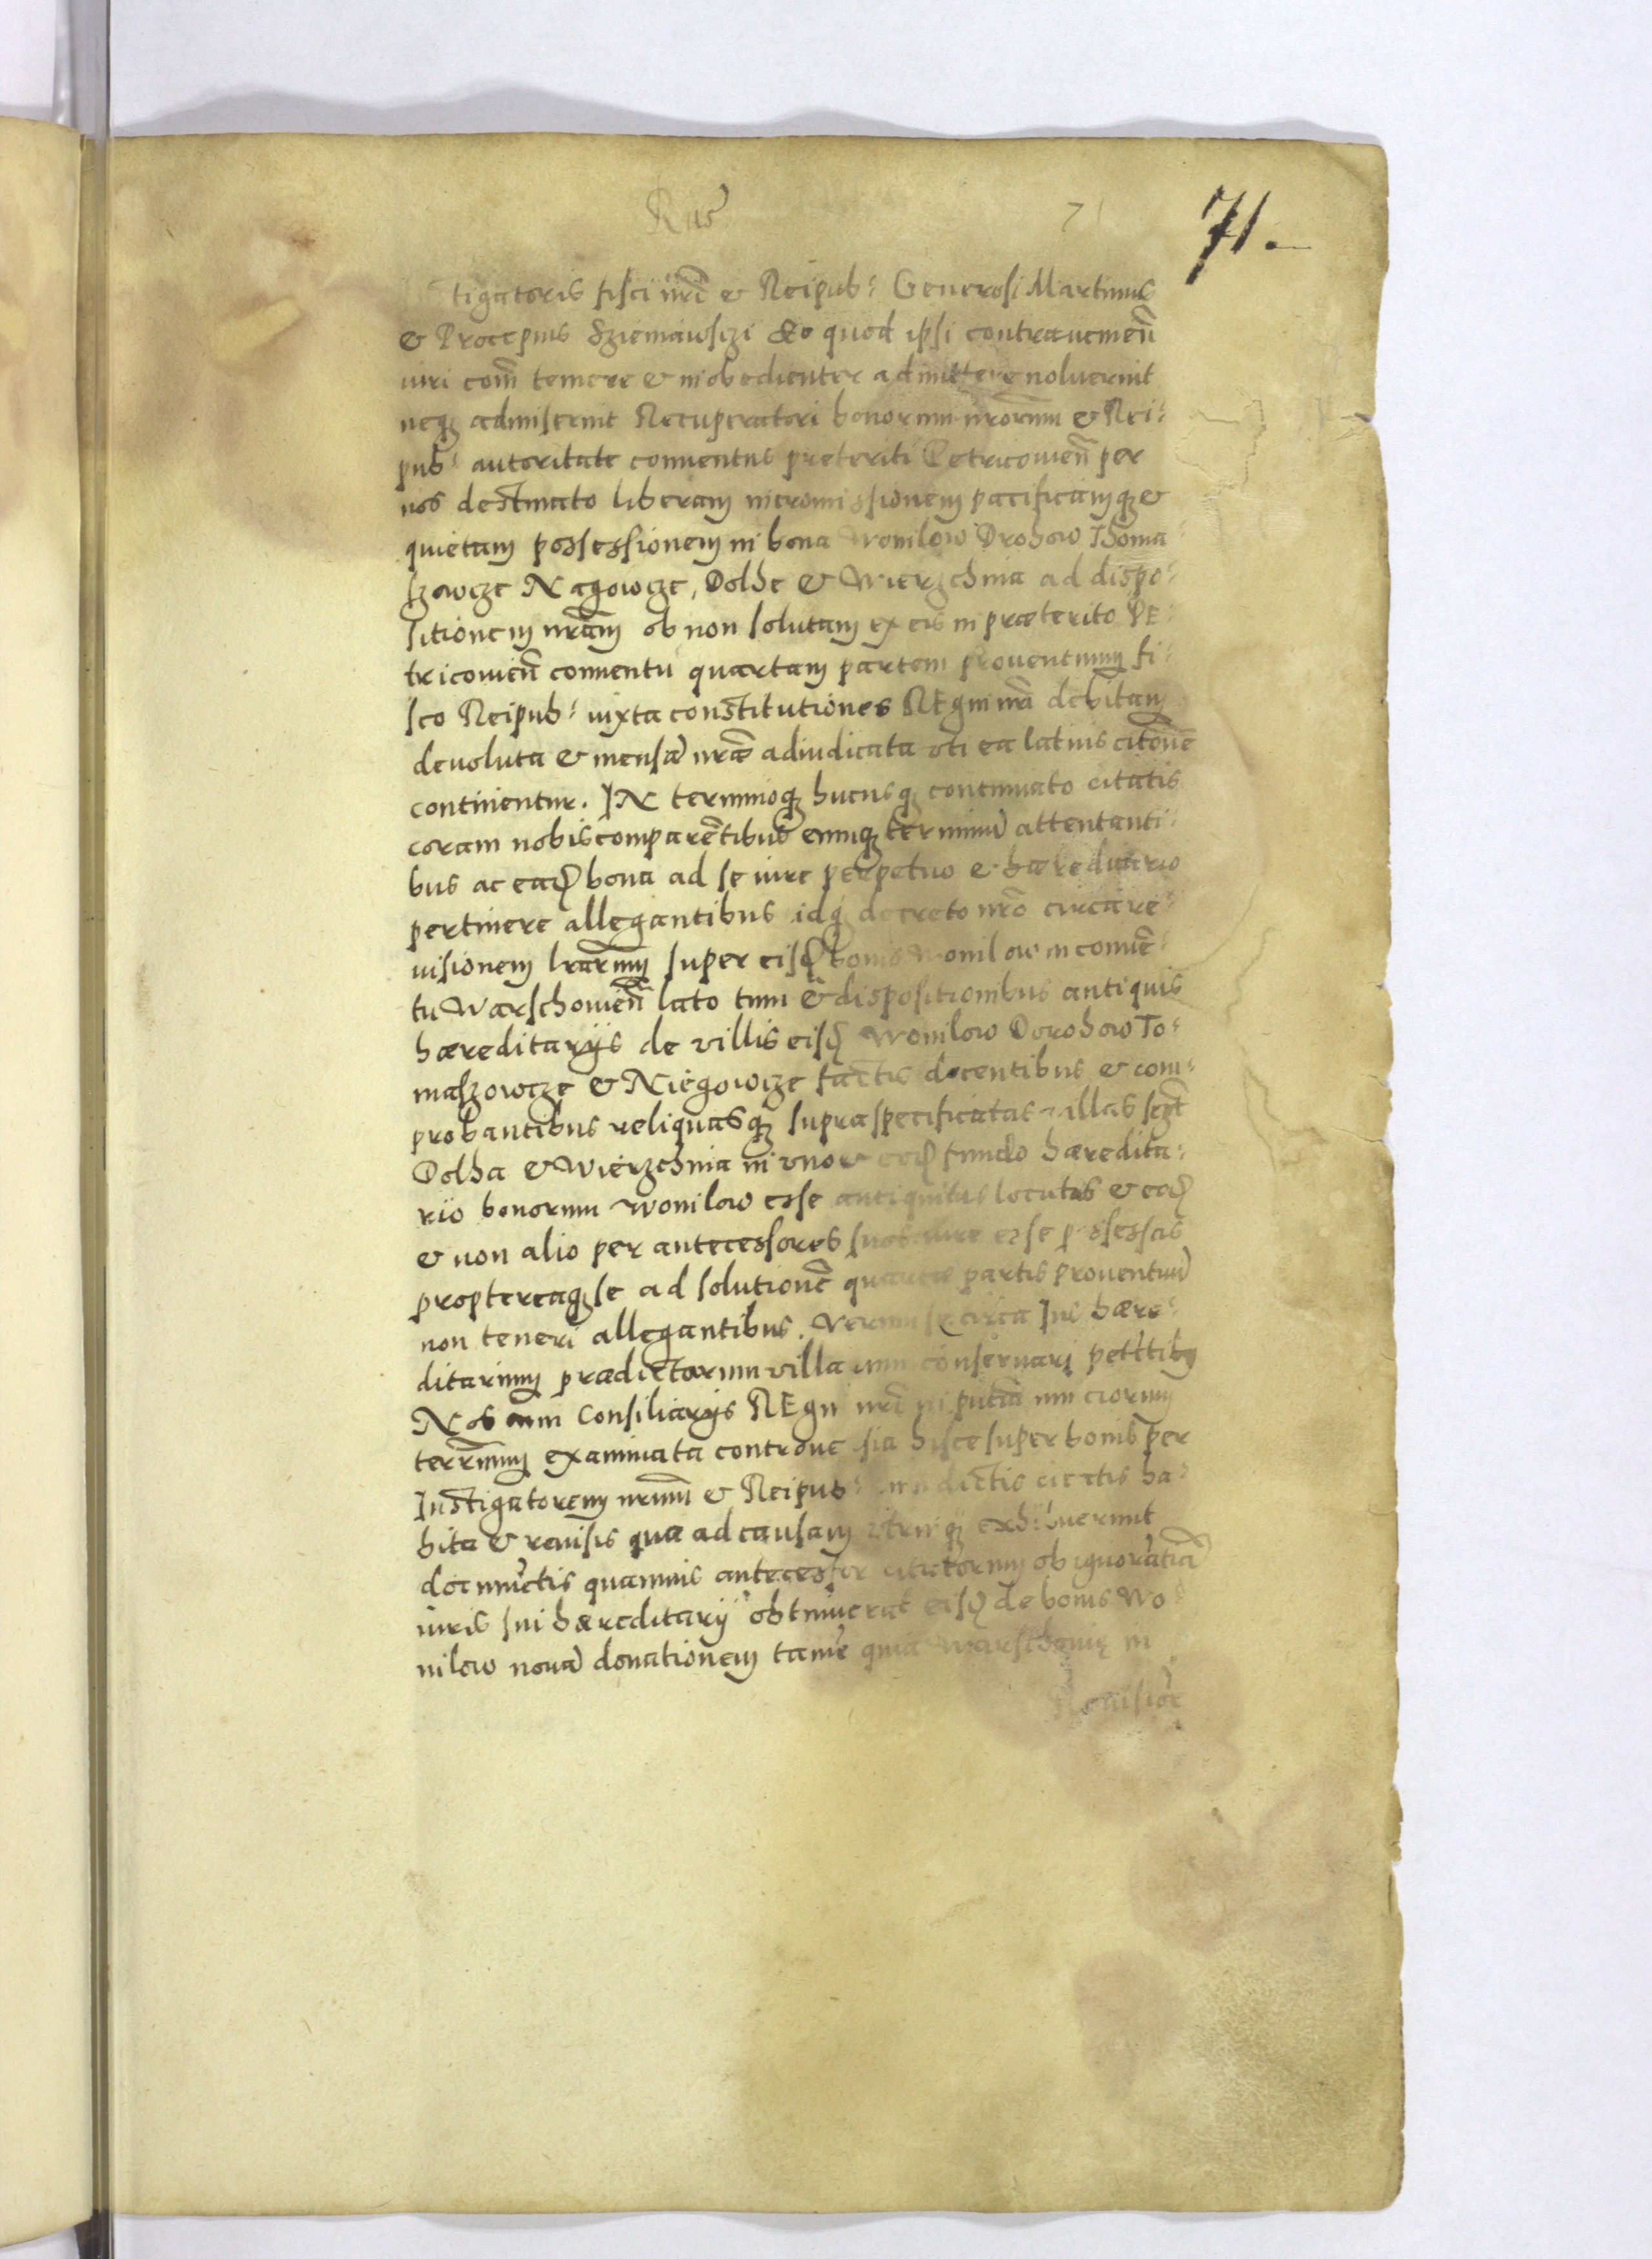 Rus
71
71.
tigatoris fisci nrĩ & Reipub: Generosi Martinus
& Procopius Sziemawszi Eo quod ipsi contrauenien̄
iuri com̄ temere & inobedienter admittere noluerint
neq3 admiserint Recuperatori bonorum nrorum & Rei:
pub: autoritate conuentus preteriti Petricouien̄ per
nos destinato liberam intromissionem pacificamq3 &
quietam possessionem in bona Wonilow Drohow Thoma:
szowcze Nagowcze, Dolhe & Wierzchnia ad dispo:
sitionem nr̄am ob non solutam ex eis in præterito PE:
tricouien̄ conuentu quartam partem prouentuum fi:
sco Reipub: iuxta constitutiones REgni nrĩ debitam
deuoluta & mensæ nræ adiudicata vti ea latius citōnē
continentur. IN terminoq3 hucusq3 continuato citatis
coram nobis comparētibus eumq3 terminū attentanti:
bus ac eaq̃ bona ad se iure perpetuo & hæreditario
pertinere allegantibus idq3 decreto nrō circa re:
uisionem lrārum super eisq̃ bonis Wonilow in conuē:
tu Warschouien̄ lato tum & dispositionibus antiquis
hæreditarijs de villis eisq̃ Wonilow Dorohow To:
maszowcze & Niegowcze factis docentibus & com:
probantibus reliquasq3 supraspecificatas villas sczt̃
Dolha & Wierzchnia in vno & eoq̃ fundo hæredita:
rio bonorum Wonilow esse antiquitus locatas & eoq̃
& non alio per antecessores suos iure esse possessas
proptereaq3 se ad solutionē quartæ partis prouentuū
non teneri allegantibus. Verum se circa Ius hære:
ditarium prædictarum villarum conseruari petētibꝰ
Nos cum Consiliarijs REgni nrĩ in pn̄tia nunciorum
terrr̄um examinata controuersia hisce super bonis per
Instigatorem nrum & Reipub: cum dictis citatis ha:
bita & reuisis qua ad causam vtrinq3 exhibuerunt
documētis quamuis antecessor citatorum ob ignoratiā
iuris sui hæreditarij obtinuerat eisq̃ de bonis Wo:
nilow nouā donationem tamē quia Warschouię in
Reuisiōe